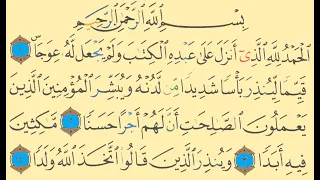 بِسْمِ ٱللَّهِ ٱلرَّحْمَٰنِ ٱلرَّحِيمِ
ٱلْحَمْدُ لِلَّهِ ٱلَّذِىٓ أَنزَلَ عَلَىٰ عَبْدِهِ ٱلْكِتَٰبَ وَلَمْ يَجْعَل لَّهُۥ عِوَجَاۜ ١
قَيِّمًا لِّيُنذِرَ بَأْسًا شَدِيدًا مِّن لَّدُنْهُ وَيُبَشِّرَ ٱلْمُؤْمِنِينَ ٱلَّذِينَ
يَعْمَلُونَ ٱلصَّٰلِحَٰتِ أَنَّ لَهُمْ أَجْرًا حَسَنًا ٢ مَّٰكِثِينَ
فِيهِ أَبَدًا ٣ وَيُنذِرَ ٱلَّذِينَ قَالُوا۟ ٱتَّخَذَ ٱللَّهُ وَلَدًا ٤